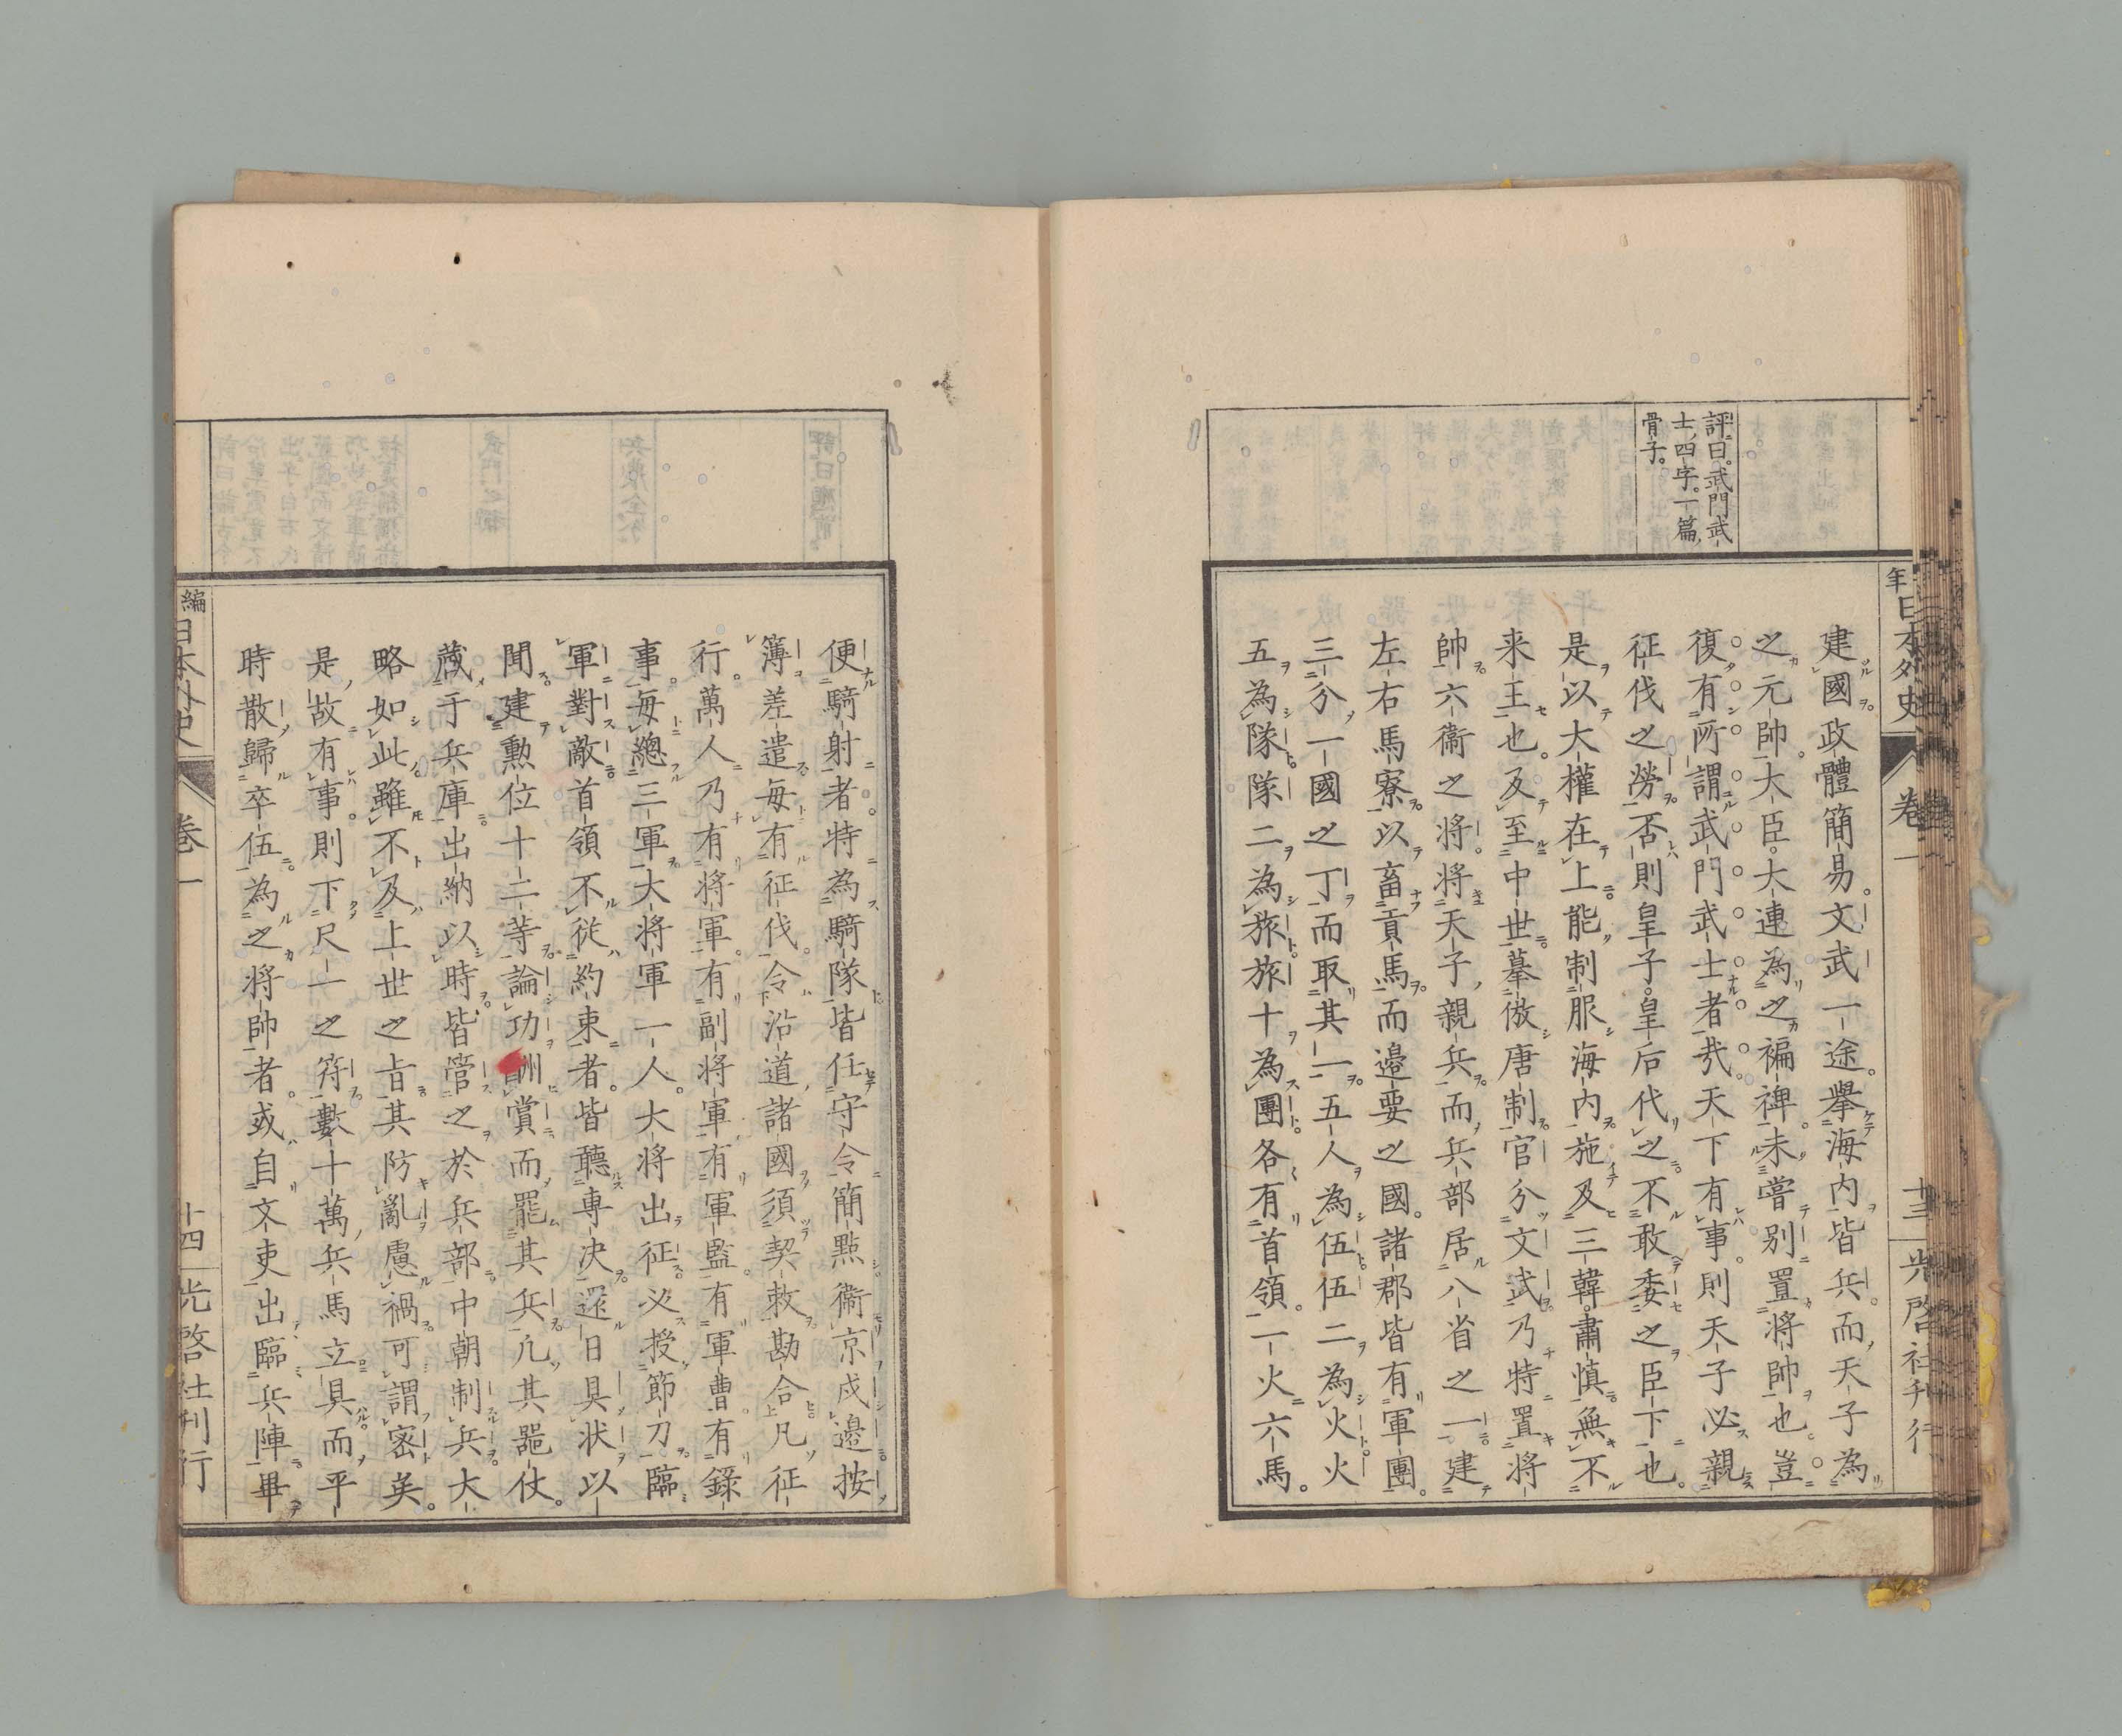 評曰。武門武
士四字。一篇
骨子。
年日本外史
卷一
十三
光啓社刊行
建國政體簡易。文武一途。擧海内皆兵。而天子為
之元帥。大臣。大連為之褊裨。未嘗別置將帥也。豈
復有所謂武門武士者哉。天下有事。則天子必親
征伐之勞。否則皇子。皇后代之。不敢委之臣下也。
是以大權在上。能制服海内。施及三韓。肅慎。無不
来王也。及至中世。摹倣唐制。官分文武。乃特置將
帥。六衞之將。將天子親兵。而兵部居八省之一。建
左右馬寮。以畜貢馬。而邊要之國。諸郡皆有軍團。
三分一國之丁。而取其一。五人為伍。伍二為火。火
五為隊。隊二為旅。旅十為團。各有首領。一火六馬。
便騎射者。特為騎隊。皆任守令簡點。衞京戍邊。按
簿差遣。每有征伐。令沿道諸國。須契敕勘合。凡征
行。萬人乃有將軍。有副將軍。有軍監。有軍曹。有錄
事。每總三軍。大將軍一人。大將出征。必授節刀。臨
軍對敵。首領不従約束者。皆聽專决。還日具状以
聞。建勲位十二等。論功酬賞。而罷其兵。凡其噐仗。
蔵于兵庫。出納以時。皆管之於兵部。中朝制兵。大
略如此。雖不及上世之旨。其防亂慮禍。可謂密矣。
是故有事。則下尺一之符。數十萬兵馬立具。而平
時散歸卒伍。為之將帥者。或自文吏出臨兵陣。畢
編日本外史
卷一
十四
光啓社刊行